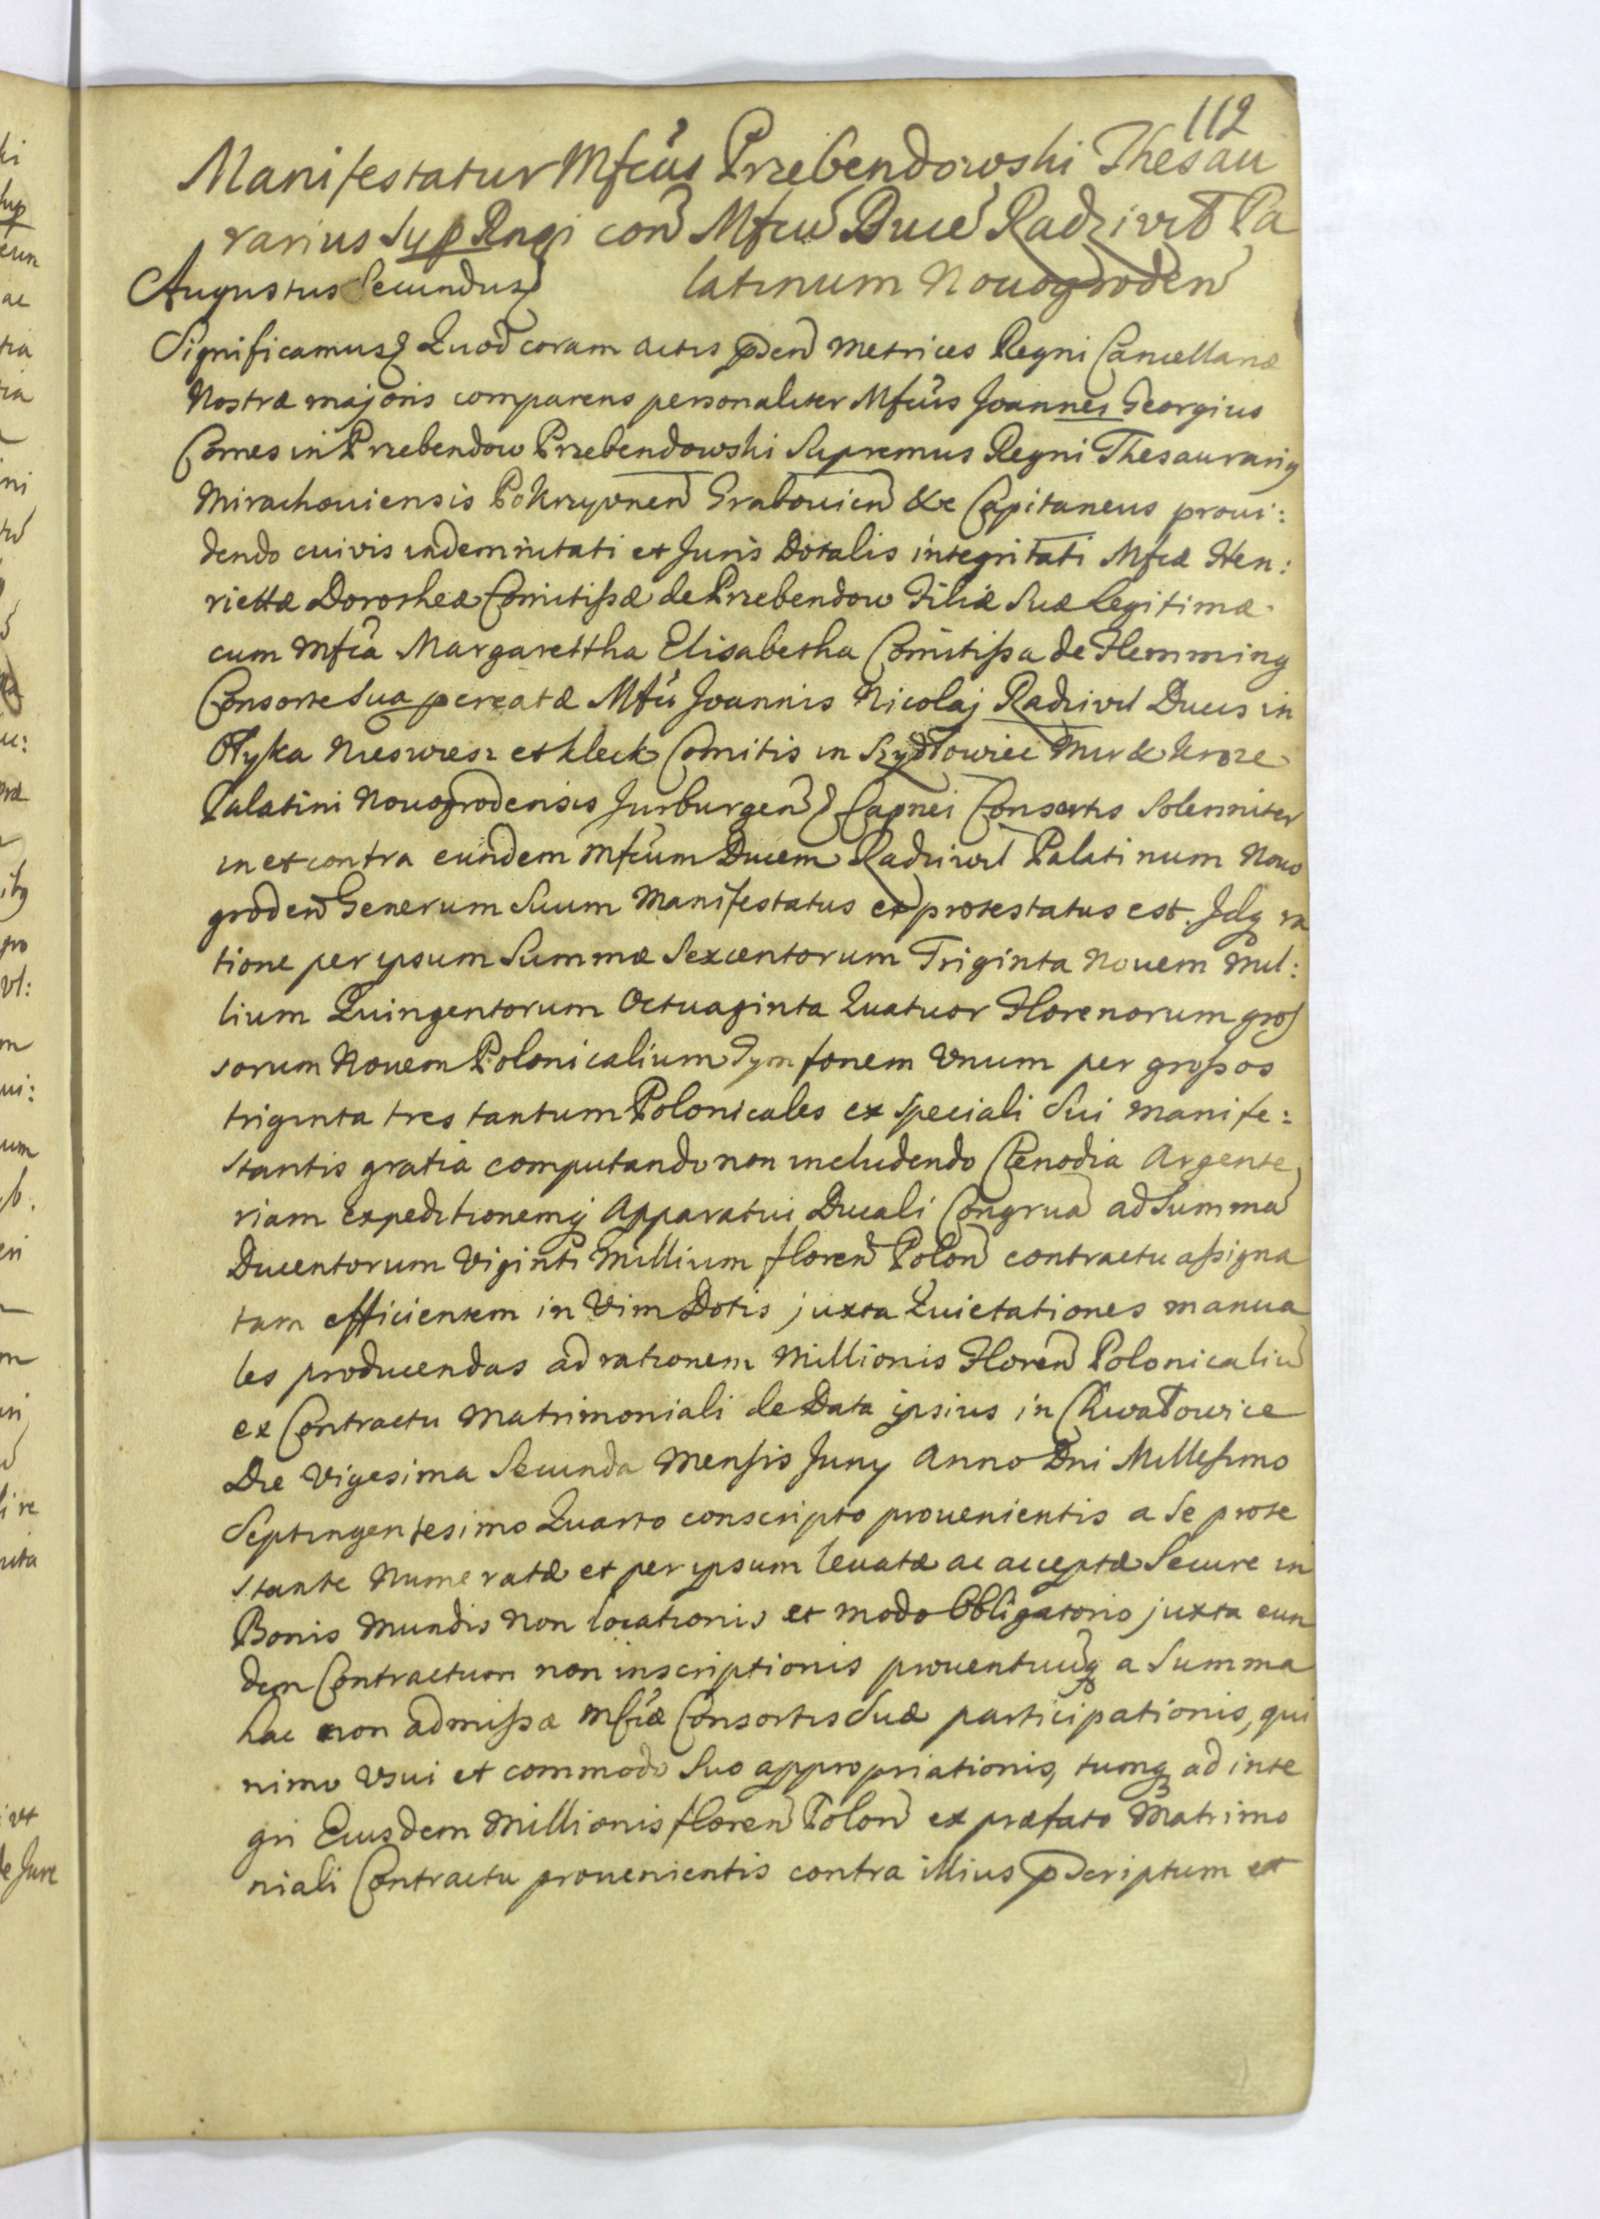 112
Manifestatur Mfcus Przebendowski Thesau
rarius Sup Regni con Mfcu Duce Radziwił Pa
Augustus Secundus latinum Nouogroden
Significamus Quod coram actis pden Metrices Regni Cancellariæ
Nostræ majoris comparens personaliter Mfcus Joannes Georgius
Comes in Przebendow Przebendowski Supremus Regni Thesaurariq
Mirachouiensis Pokrzywnen Grabouien &c Capitaneus proui:
dendo cuivis indemnitati et Juris Dotalis integritati Mfcæ Hen:
riettæ Dorotheæ Comitissæ de Przebendow Filiæ Suæ Legitimæ
cum Mfca Margarettha Elisabetha Comitissa de Flemming
Consorte Sua procreatæ Mfci Joannis Nicolaj Radziwił Ducis in
Ołyka Nieswiesz et Kleck Comitis in Szydłowiec Mir & Kroze
Palatini Nouogrodensis Jurburgen Capnei Consortis Solenniter
in et contra eundem Mfcum Ducem Radziwił Palatinum Nouo
groden Generum Suum Manifestatus et protestatus est. Idq ra
tione per ipsum Summæ Sexcentorum Triginta Nouem Mil:
lium Quingentorum Octuaginta Quatuor Florenorum gros
sorum Nouem Polonicalium Tymfonem Vnum per grossos
triginta tres tantum Polonicales ex speciali Sui Manife:
stantis gratia computando non includendo Clenodia Argente
riam expeditionemq Apparatui Ducali Congrua ad Summa
Ducentorum Viginti Millium floren Polon contractu assigna
tam efficientem in Vim Dotis juxta Quietationes manua
les producendas ad rationem Millionis Floren Polonicaliu
ex Contractu Matrimoniali de Data ipsius in Chwałowice
Die Vigesima Secunda Mensis Juny Anno Dni Millesimo
Septingentesimo Quarto conscripto prouenientis a Se prote
stante Numeratæ et per ipsum leuatæ ac acceptæ Secure in
Bonis Mundis Non locationis et modo Obligatorio juxta eun
dem Contractum non inscriptionis prouentuuq a Summa
hac non admissæ Mfcæ Consortis Suæ participationis, qui
nimo Vsui et commodo Suo appropriationis, tumq ad inte
gri Eiusdem Millionis floren Polon ex præfato Matrimo
niali Contractu prouenientis contra illius pscriptum et